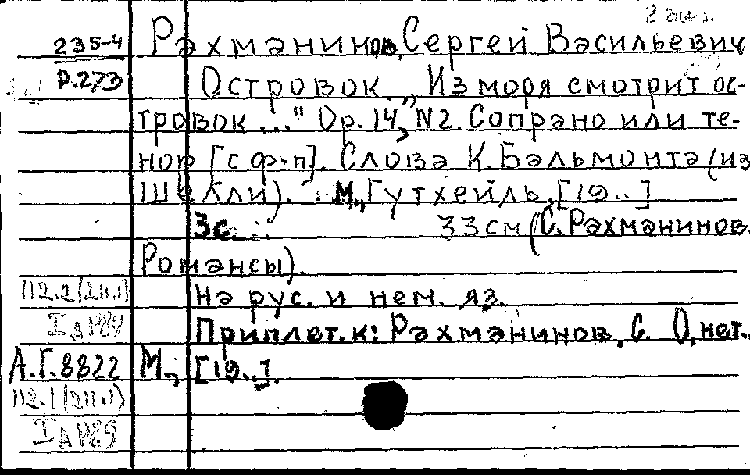 2 экз.
235-4 Рахманинов, Сергей Васильевич
Р.273 Островок. „Из моря смотрит ос-
тровок..." Ор. 14, N2. Сопрано или те-
нор [с ф-п]. Слова К. Бальмонта (из
Шелли). М., Гутхейль, [19..]
3с. 33см (С. Рахманинов.
Романсы).
На рус. и нем. яз.
Приплет. к: Рахманинов, С. О, нет..
А.Г.8822 М., [19..].